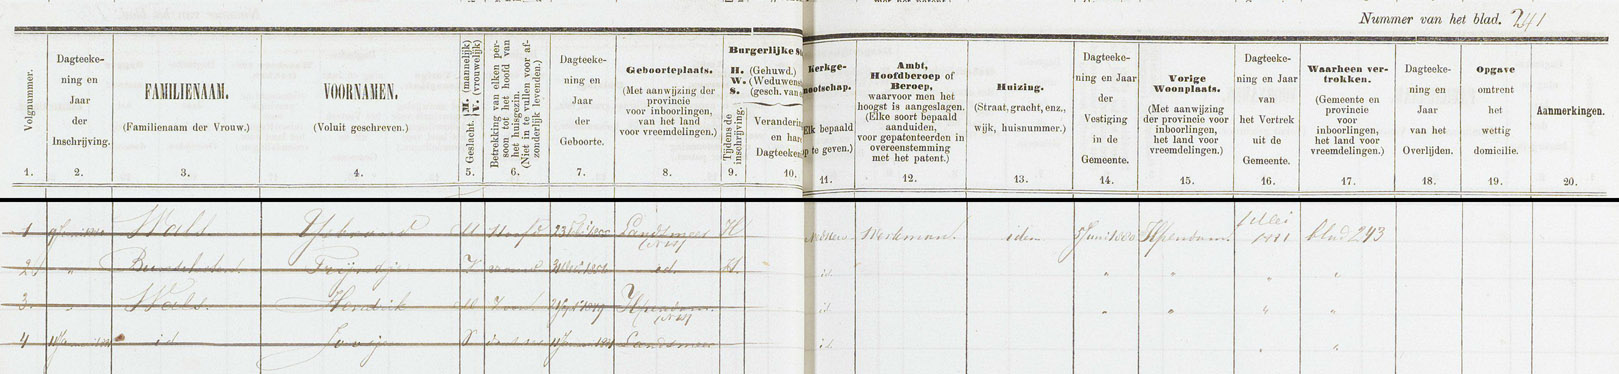 Nummer van het blad. 241
Volgnummer.
1.
Dagteeke-
ning en
Jaar
der
Inschrijving.
2.
FAMILIENAAM.
(Familienaam der Vrouw.)
3.
VOORNAMEN.
(Voluit geschreven.)
4.
Geslacht. M. (mannelijk)
V. (vrouwelijk)
5.
Betrekking van elken per-
soon tot het hoofd van
het huisgezin.
(Niet in te vullen voor af-
zonderlijk levenden.)
6.
Dagteeke-
ning en
Jaar
der
Geboorte.
7.
Geboorteplaats.
(Met aanwijzing der
provincie
voor inboorlingen,
van het land
voor vreemdelingen.)
8.
Burgerlijke S
H. (Gehuwd.)
W. (Weduwen
S. (gesch. van
Tijdens de
inschrijving.
9.
Verandering
en han
Dagteeken
10.
Kerkge-
nootschap.
Elk bepaald
op te geven.)
11.
Ambt,
Hoofdberoep of
Beroep,
waarvoor men het
hoogst is aangeslagen.
(Elke soort bepaald
aanduiden,
voor gepatenteerden in
overeenstemming
met het patent.)
12.
Huizing.
(Straat, gracht, enz.,
wijk, huisnummer.)
13.
Dagteeke-
ning en Jaar
der
Vestiging
in de
Gemeente.
14.
Vorige
Woonplaats.
(Met aanwijzing
der provincie voor
inboorlingen,
het land voor
vreemdelingen.)
15.
Dagteeke-
ning en Jaar
van
het Vertrek
uit de
Gemeente.
16.
Waarheen ver-
trokken.
(Gemeente en
provincie
voor
inboorlingen,
het land voor
vreemdelingen.)
17.
Dagteeke-
ning en
Jaar
van het
Overlijden.
18.
Opgave
omtrent
het
wettig
domicilie.
19.
Aanmerkingen.
20.
1 Hoofd Landsmeer H Werkman idem Ilpendam blad 243
2 " id. H. id. " " " "
3. " Wals Hendrik M Ilpendam id. " " " "
4 id Landsmeer id. " "